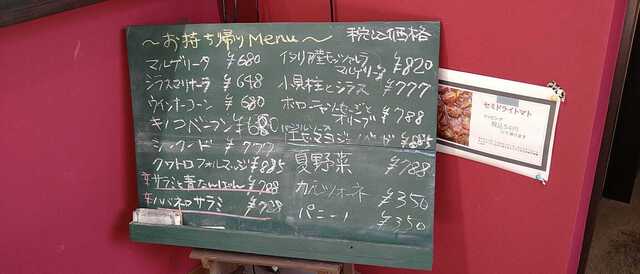 ～お持ち帰りMenu～ 税込価格
マルゲリータ ¥680
シラスマリナーラ ¥648
ウインナーコーン ¥680
キノコベーコン ¥680
シーフード ¥777
クワトロフォルマッジ ¥885
辛サラミと青とうがらし ¥788
辛ハバネロサラミ ¥788
イタリア産モッツァレラ
マルゲリータ ¥820
小貝柱とシラス ¥777
オリーブ ¥788
¥885
夏野菜 ¥788
カルツォーネ ¥350
パニーノ ¥350
セミドライトマト
トッピング
税込54円